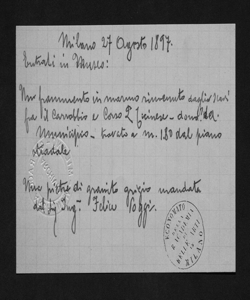 Milano 27 Agosto 1897.
Entrati in Museo:
Un frammento in marmo rinvenuto negli scavi
fra il Carrobbio e Corso P. Ticinese - dono da
Municipio - trovato a m. 1.80 dal piano
stradale
Una pietra di granito grigio mandata
dal Sig. Ing.r Felice Poggi.
ECONOMATO
MILANO